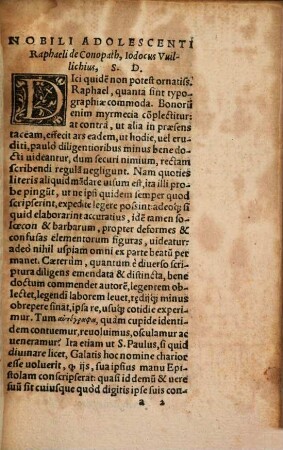 NOBILI ADOLESCENTI
Raphaeli de Conopath, Iodocus Vuil-
lichius, S. D.
DIci quidē non potest ornatiss.
Raphael, quanta sint typo-
graphiæ commoda. Bonorū
enim myrmecia cōplectitur:
at contrà, ut alia in præsens
taceam, effecit ars eadem, ut hodie, uel eru
diti, paulò diligentioribus minus bene do-
cti uideantur, dum securi nimium, rectam
scribendi regulā negligunt. Nam quoties
literis aliquid mādare uisum est, ita illi pro
be pingūt, ut ne ipsi quidem semper quod
scripserint, expedite legere possint: adeoq́; si
quid elaborarint accuratius, idē tamen so-
lœcon & barbarum, propter deformes &
confusas elementorum figuras, uideatur:
adeò nihil uspiam omni ex parte beatū per
manet. Cæterùm, quantum è diuerso scri-
ptura diligens emendata & distincta, bene
doctum commendet autorē, legentem ob-
lectet, legendi laborem leuet, tędijq́; minus
obrepere sinat, ipsa re, usuq́; cotidie experi-
mur. Tum αὐτόγραφα, quàm cupide identi-
dem contuemur, reuoluimus, osculamur ac
ueneramur? Ita etiam ut S. Paulus, si quid
diuinare licet, Galatis hoc nomine charior
esse uoluerit, q̀ ijs, sua ipsius manu Epi-
stolam conscripserat: quasi id demū & uere
suū sit cuiusque quod digitis ipse suis con-
a 2